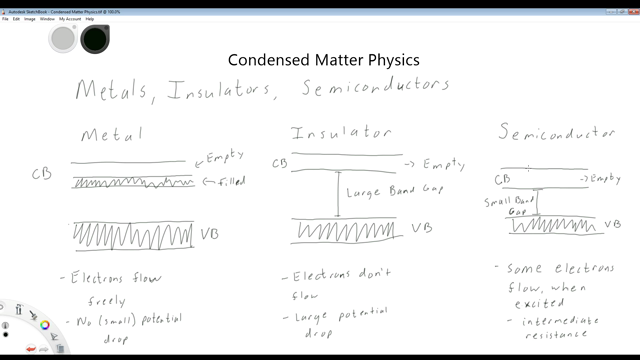 Autodesk SketchBook - Condensed Matter Physics.tif @ 100.0%
File Edit Image Window My Account Help
Condensed Matter Physics
Metals, Insulators, Semiconductors
Metal
CB
Empty
filled
VB
- Electrons flow
freely
- No (small) potential
drop
Insulator
CB
Empty
Large Band Gap
VB
- Electrons don't
flow
- Large potential
drop
Semiconductor
CB
Empty
Small Band
Gap
VB
- Some electrons
flow, when
excited
- intermediate
resistance